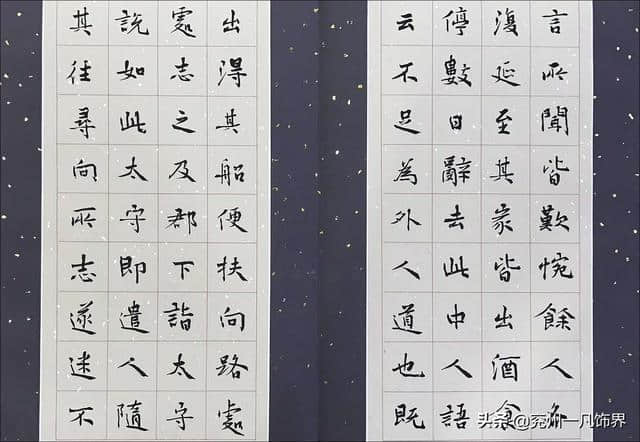 言所聞皆歎惋餘人亦
復延至其家皆出酒食
停數日辭去此中人語
云不足為外人道也既
出得其船便扶向路處
處志之及郡下詣太守
說如此太守即遣人隨
其往尋向所志遂迷不
头条 @兖州一凡饰界